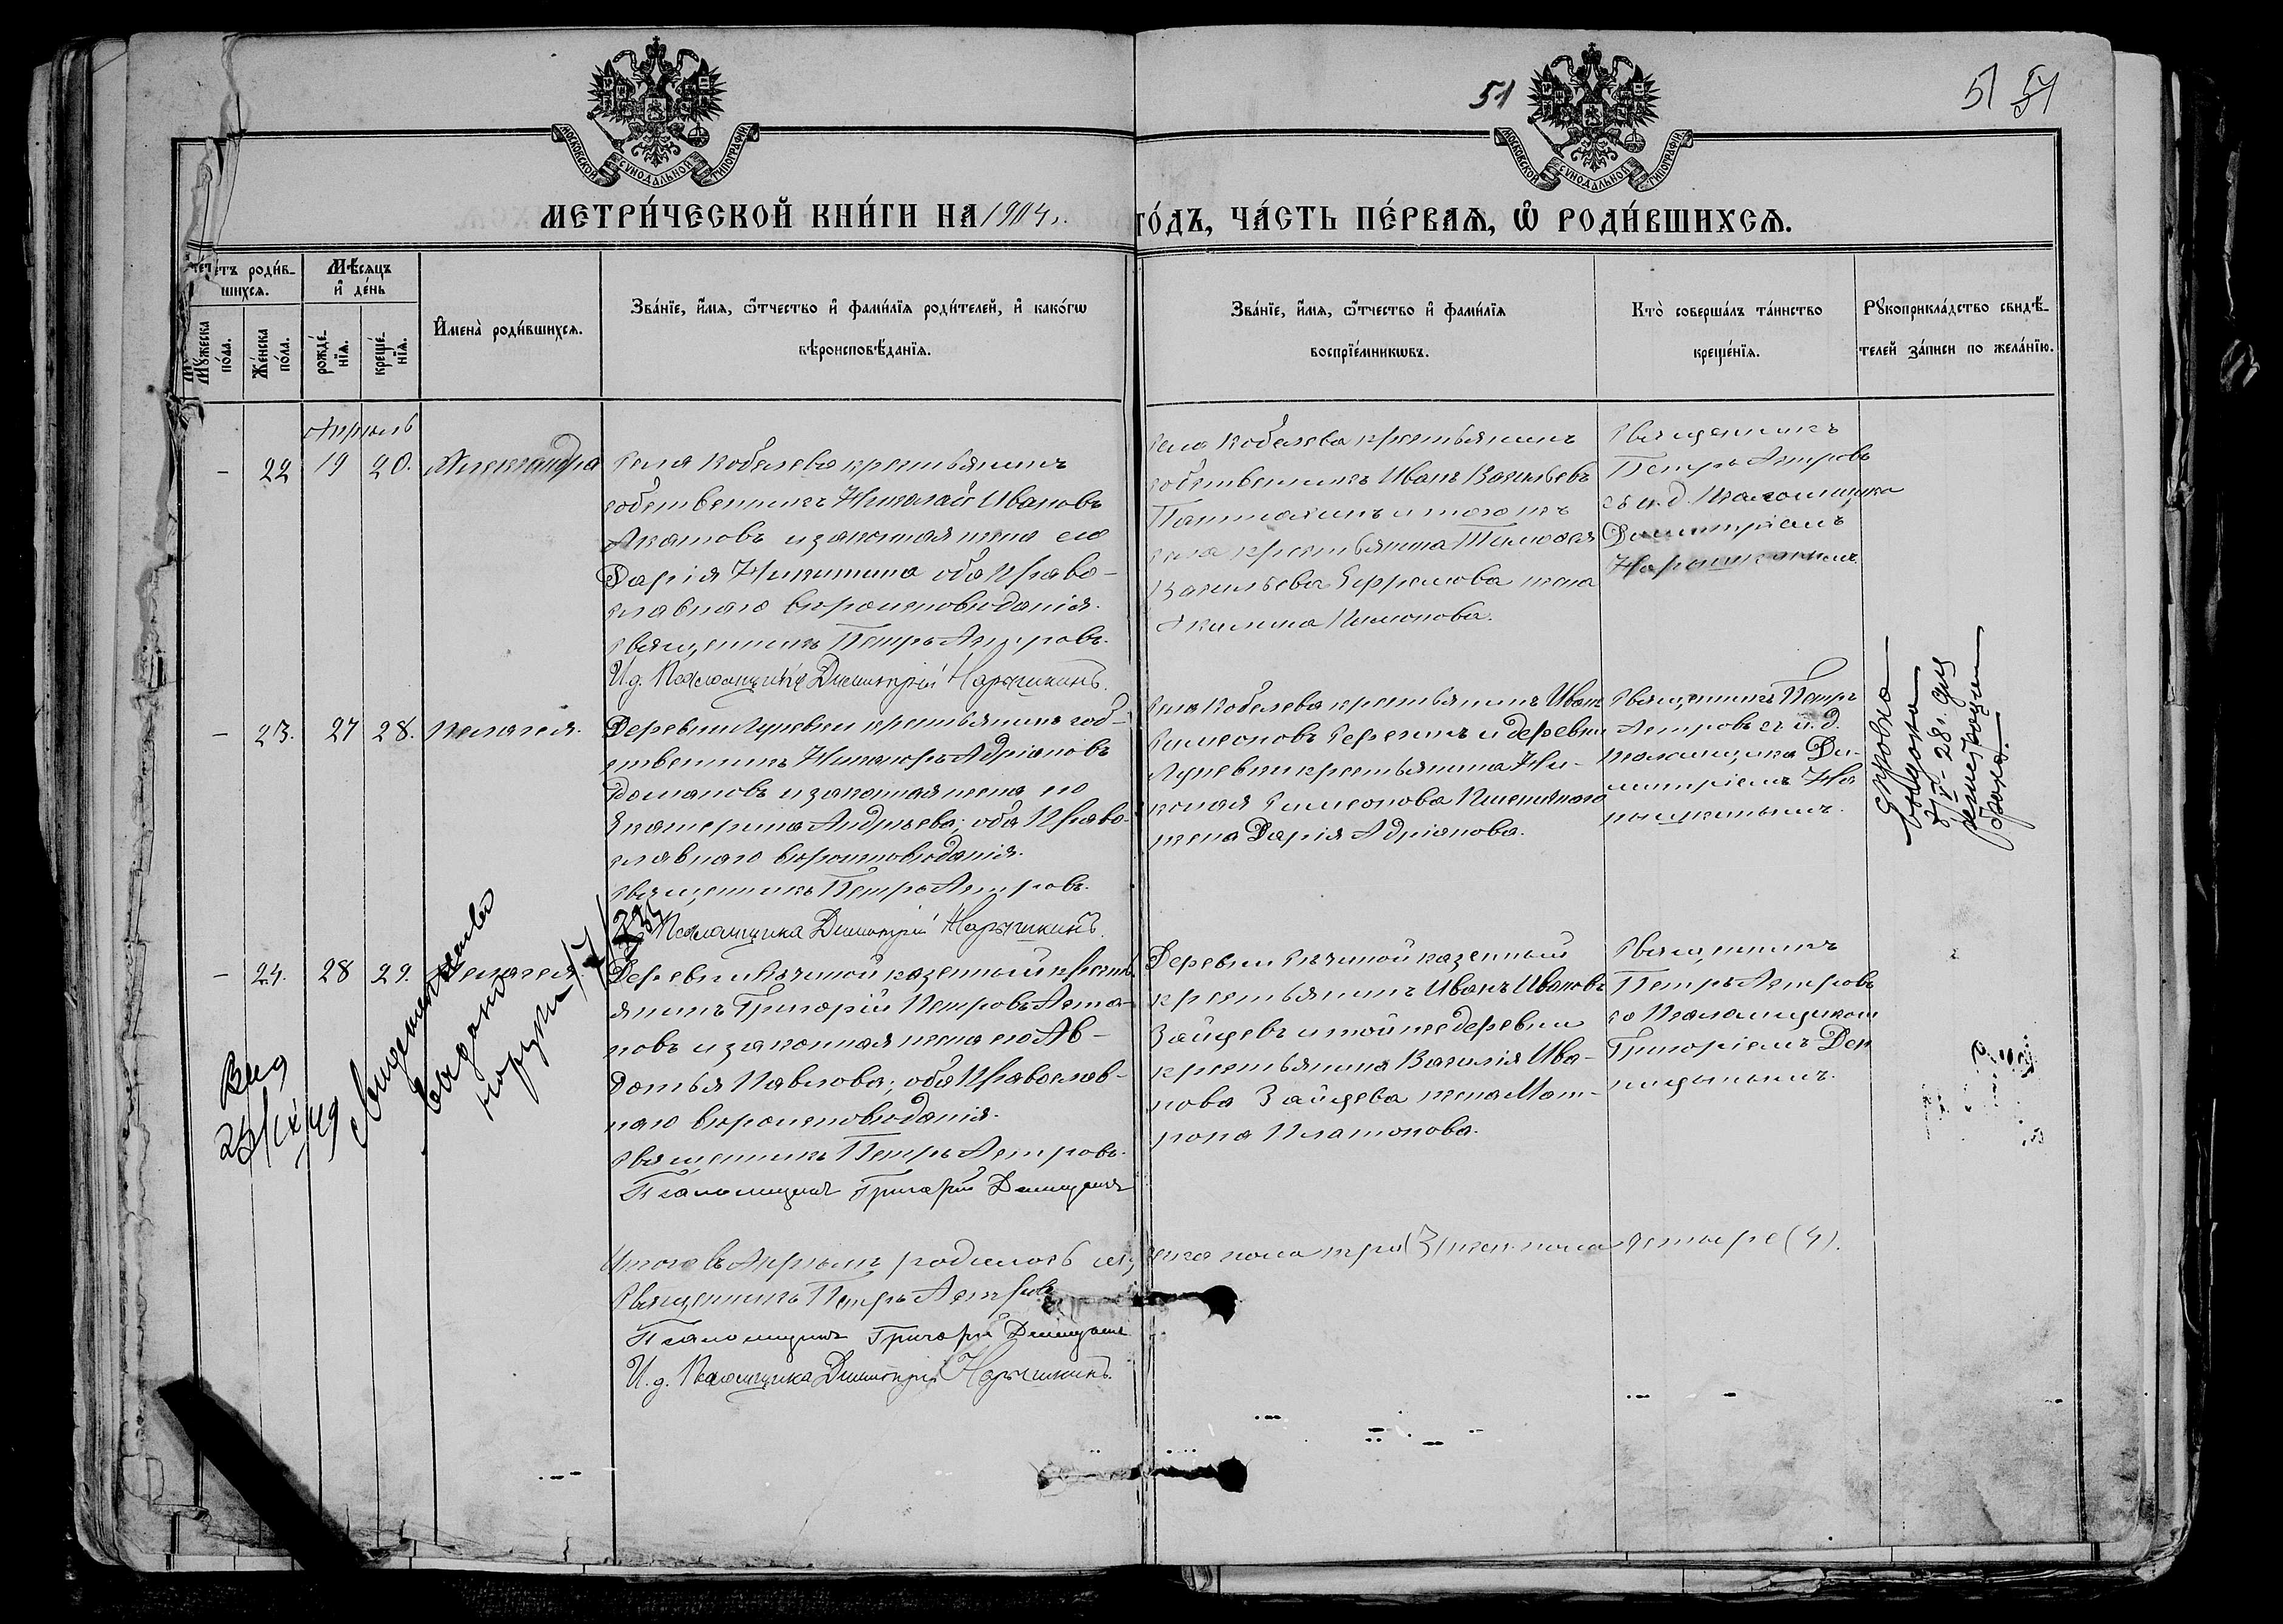 51
51
МОСКОВСКОЙ СѴНОДАЛЬНОЙ ТИПОГРАФІИ.
МОСКОВСКОЙ СѴНОДАЛЬНОЙ ТИПОГРАФІИ.
МЕТРИ́ЧЕСКОЙ КНИ́ГИ НА 1904 г.
ГО́ДЪ, ЧА́СТЬ ПЕ́РВАѦ, Ѽ РОДИ́ВШИХСѦ.
Сче́тъ роди́в-
шихсѧ.
Мꙋ́жеска
по́ла.
Же́нска
по́ла.
Мѣ́сѧцъ
и҆ де́нь
рожде́-
нїѧ.
креще́-
нїѧ.
И҆мена̀ роди́вшихсѧ.
Зва́нїе, и҆́мѧ, ѻ҆́тчество и҆ фами́лїѧ роди́телей, и҆ како́гѡ
вѣроисповѣ́данїѧ.
Зва́нїе, и҆́мѧ, ѻ҆́тчество и҆ фами́лїѧ
воспрїе́мникѡвъ.
Кто̀ соверша́лъ та́инство
креще́нїѧ.
Рꙋкоприкла́дство свидѣ́-
телей за́писи по жела́нїю.
Апрѣль
- 22 19 20. Александра
Села Кобелева крестьянинъ
собственникъ Николай Ивановъ
Акатовъ и законная жена его
Дарія Никитина оба Право-
славнаго вѣроисповѣданія.
Священникъ Петръ Астровъ.
И. д. Псаломщика Димитрій Нарышкинъ.
Села Кобелева крестьянинъ
собственникъ Иванъ Васильевъ
и того же
села крестьянина Тимофея
Васильева Ефремова жена
Акилина Пимонова.
Священникъ
Петръ Астровъ
съ и. д. Псаломщика
Димитріемъ
Нарышкинымъ.
- 23. 27 28. Пелагея.
Деревни Луневки крестьянинъ соб-
ственникъ Никаноръ Адріановъ
Домановъ и законная жена его
Екатерина Андреева; оба Право-
славнаго вѣроисповѣданія.
Священникъ Петръ Астровъ.
Псаломщика Димитрій Нарышкинъ.
Села Кобелева крестьянинъ Иванъ
Симеоновъ Серегинъ и деревни
Луневки крестьянина Ни-
колая Симеонова
жена Дарія Адріанова.
Священникъ Петръ
Астровъ съ и. д.
псаломщика Ди-
митріемъ На-
рышкинымъ.
Справка
выдана
28 г. для
регистрации
брака.
- 24. 28 29. Пелагея.
Деревни казенный кресть-
янинъ Григорій Петровъ Аста-
повъ и законная жена его Ав-
дотья Павлова; оба Православ-
наго вѣроисповѣданія.
Священникъ Петръ Астровъ.
Псаломщикъ Григорій
Деревни казенный
крестьянинъ Иванъ Ивановъ
Зайцевъ и той же деревни
крестьянина Василія Ива-
нова Зайцева жена Мат-
рона Платонова.
Священникъ
Петръ Астровъ
со Псаломщикомъ
Григоріемъ
Свидетельство
выдано
на руки
Итого въ Апрѣлѣ родилось муж-
еска пола три (3) жен. пола четыре (4).
Священникъ Петръ Астровъ
Псаломщикъ Григорій
И. д. Псаломщика Димитрій Нарышкинъ.